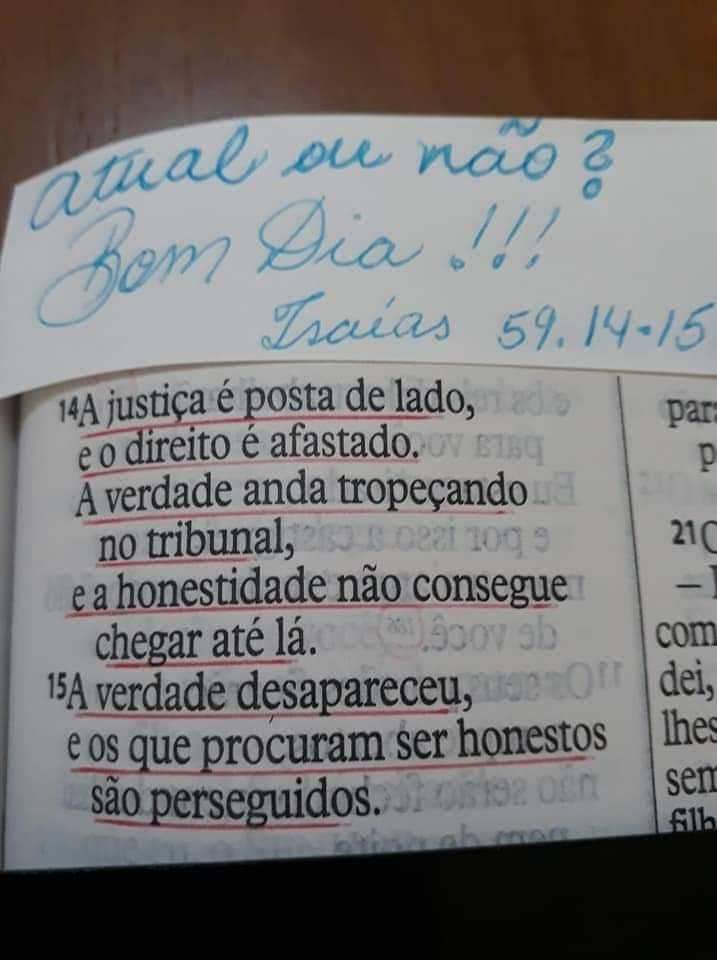 atual ou não?
Bom Dia !!!
Isaías 59.14-15
14A justiça é posta de lado,
e o direito é afastado.
A verdade anda tropeçando
no tribunal,
e a honestidade não consegue
chegar até lá.
15A verdade desapareceu,
e os que procuram ser honestos
são perseguidos.
par
p
21
com
dei,
lhes
sem
filh